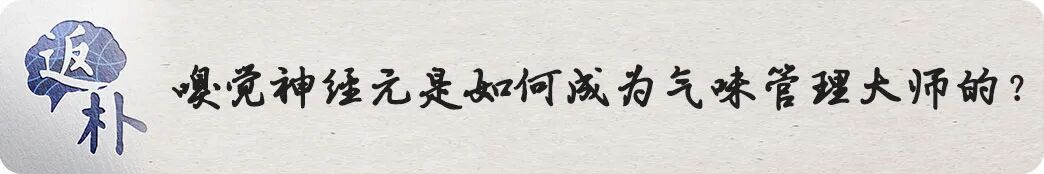 返朴
嗅觉神经元是如何成为气味管理大师的？